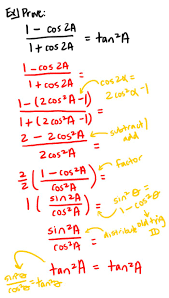 Ex1 Prove:
1 - cos 2A / 1 + cos 2A = tan²A
1 - cos 2A / 1 + cos 2A =
cos 2α = 2cos²α - 1
1 - (2cos²A - 1) / 1 + (2cos²A - 1) =
2 - 2cos²A / 2cos²A = subtract/add
2/2 (1 - cos²A / cos²A) = Factor
1 (sin²A / cos²A) = sin²θ = 1 - cos²θ
sin²A / cos²A = distribute trig ID
sin²θ / cos²θ = tan²θ
tan²A = tan²A